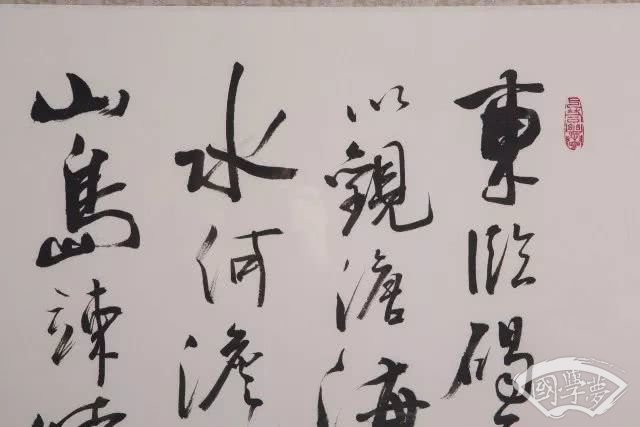 東臨碣
以觀滄海
水何澹
山島竦
國學夢